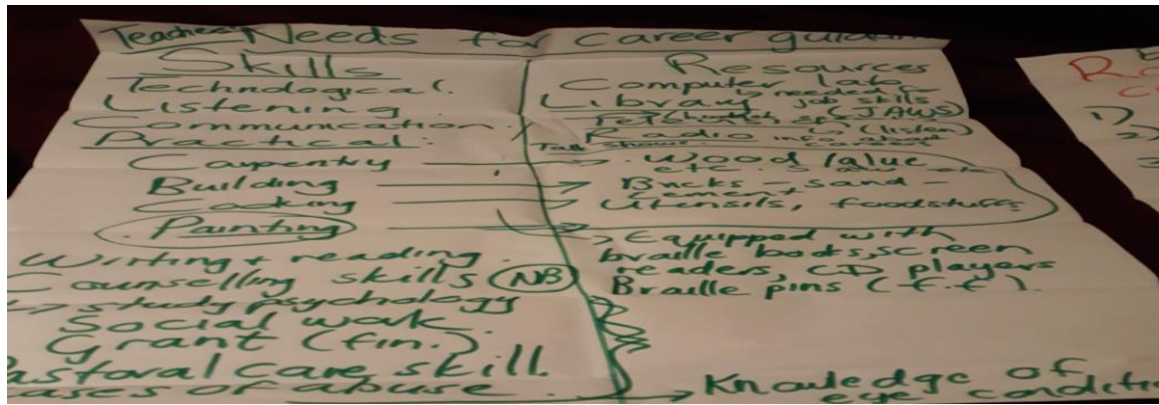 Teachers Needs for career
Skills
Technological.
Listening.
Communication.
Practical:
Carpentry
Building
Cooking
Painting
Writing + reading.
Counselling skills NB
study psychology
Social
Grant (fin.)
Pastoral care skill.
cases of abuse.
Resources
Computer labs
Library is needed for
job skills
(JAWS)
Radio (listen)
Talk shows. careers
Wood
etc.
Bricks - sand -
cement
Utensils, foodstuffs
Equipped with
braille books, screen
readers, CD players
Braille pins (f.f).
Knowledge of
eye
1)
2)
3